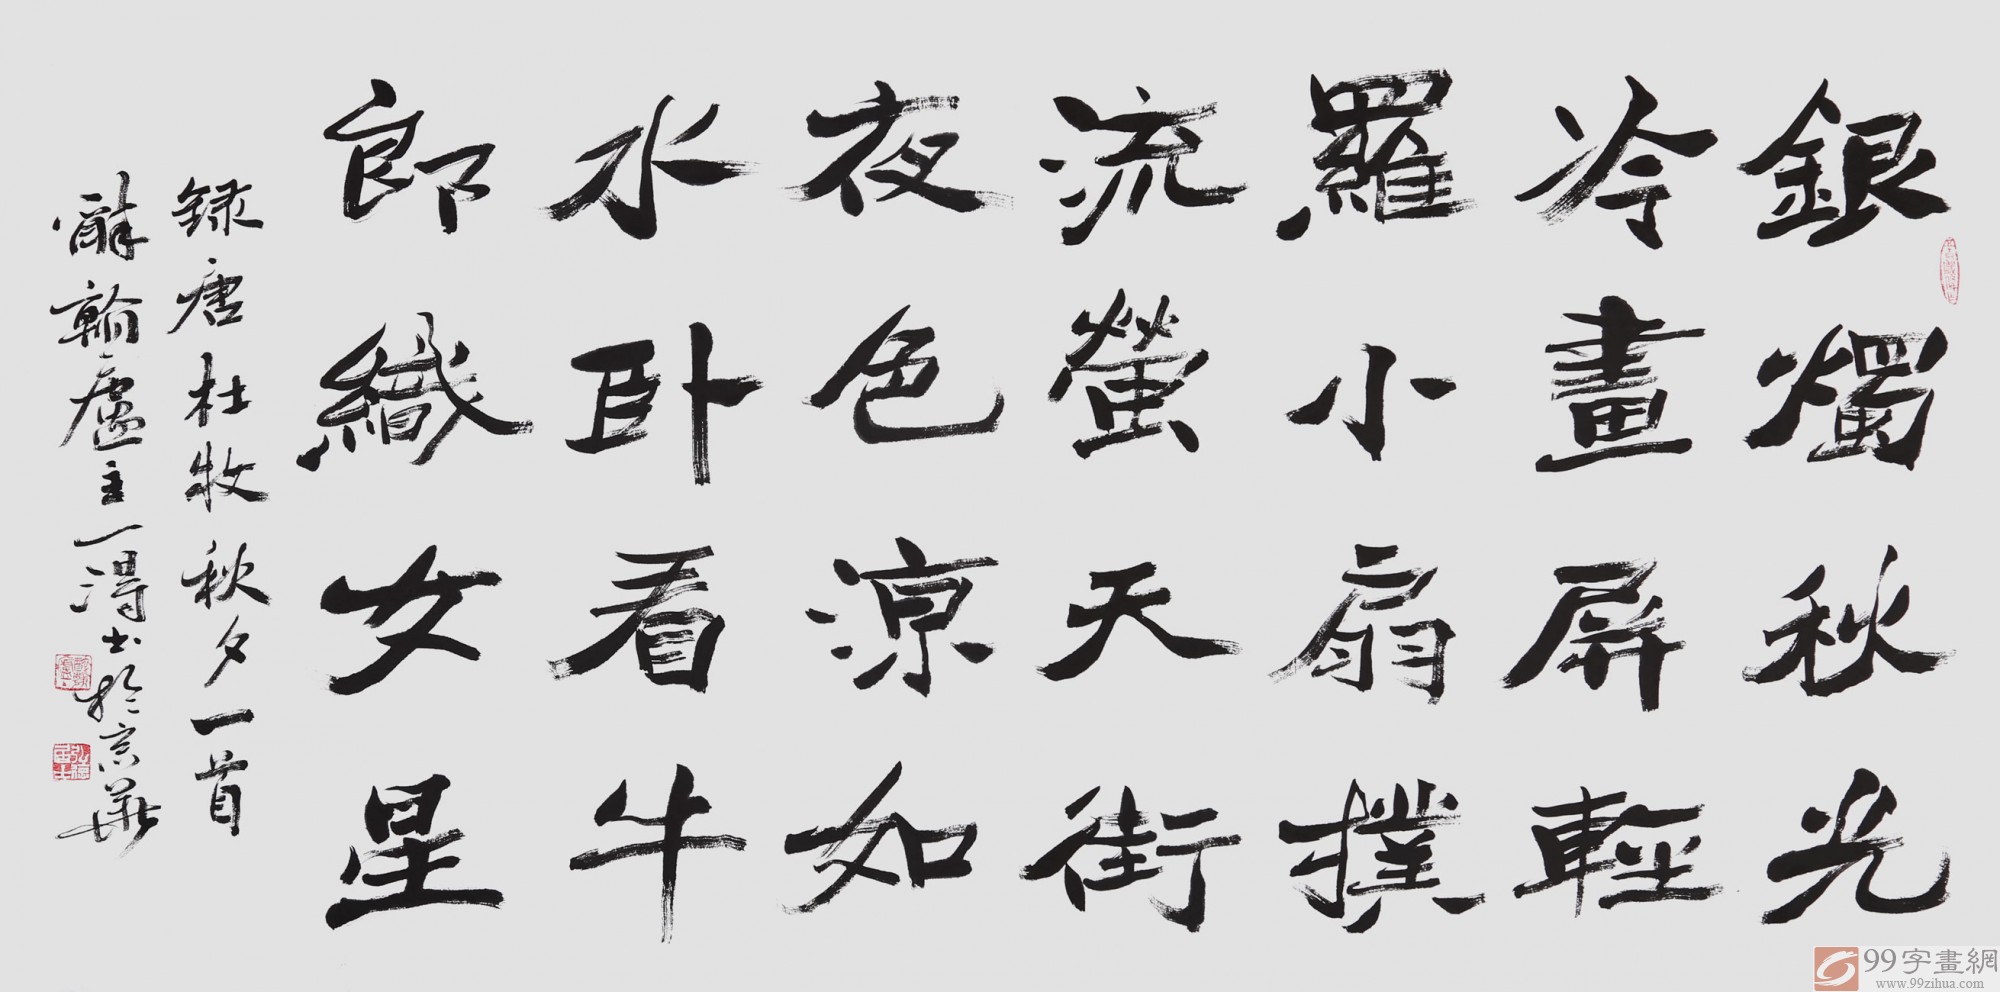 銀燭秋光
冷畫屏輕
羅小扇撲
流螢天街
夜色涼如
水卧看牛
郎織女星
録唐杜牧秋夕一首
翰廬主一得书於京華
99字畫網
www.99zihua.com